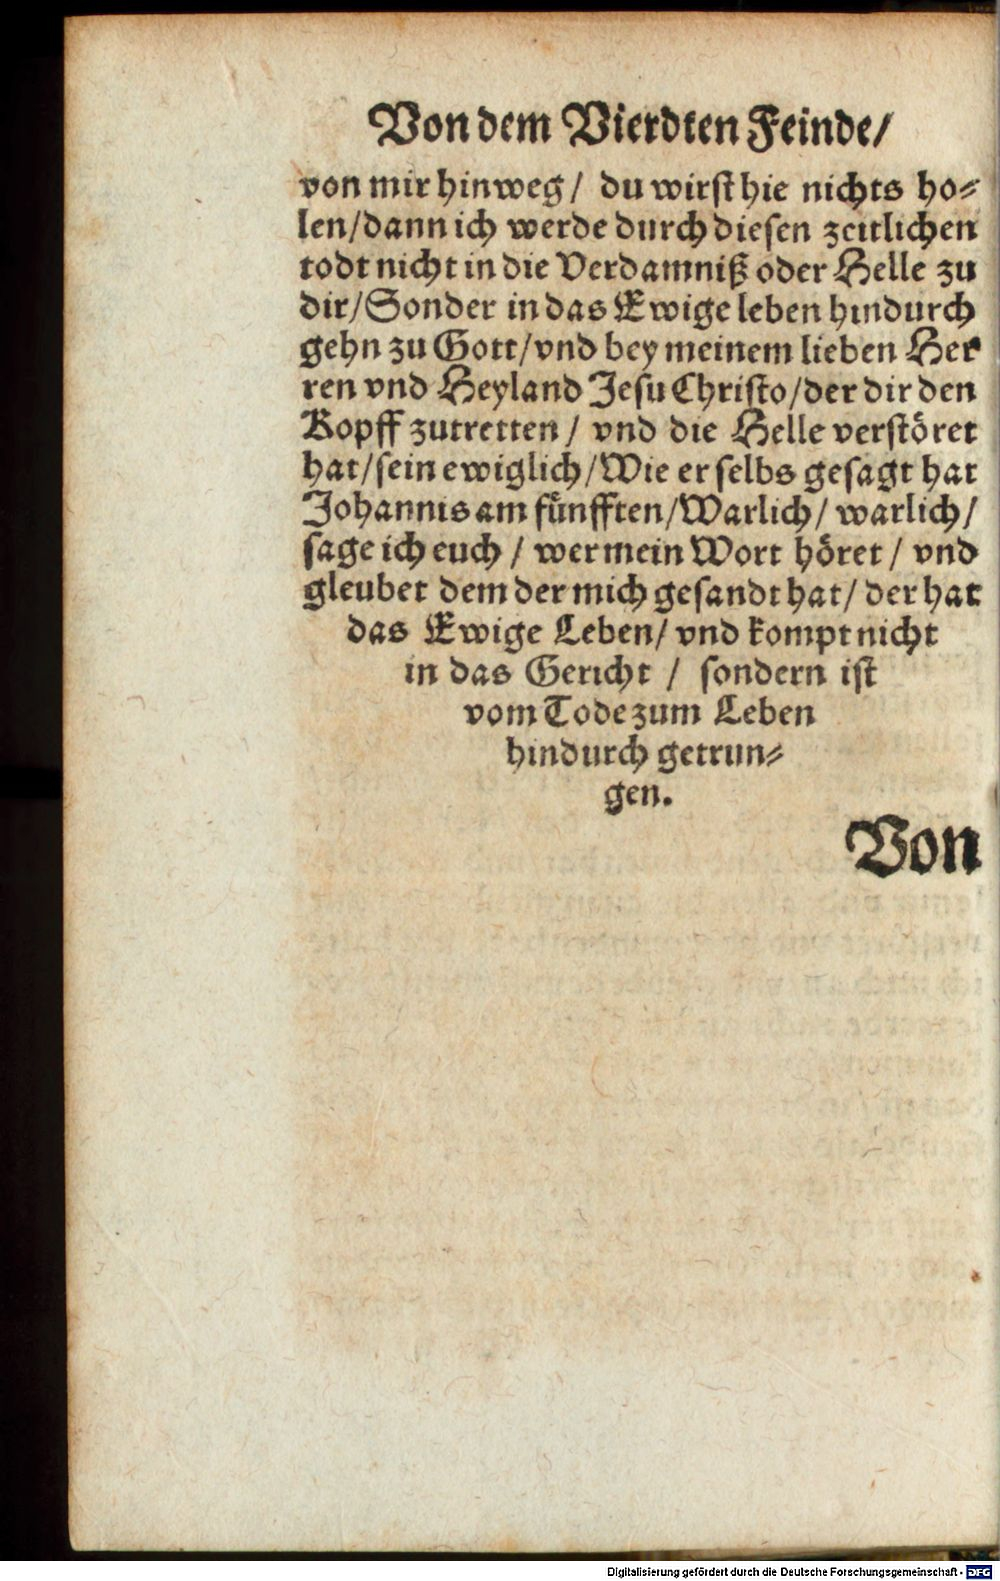 Von dem Vierdten Feinde/
von mir hinweg/ du wirst hie nichts ho⸗
len/dann ich werde durch diesen zeitlichen
todt nicht in die Verdamniß oder Helle zu
dir/Sonder in das Ewige leben hindurch
gehn zu Gott/vnd bey meinem lieben Her
ren vnd Heyland Jesu Christo/der dir den
Kopff zutretten/ vnd die Helle verstöret
hat/sein ewiglich/Wie er selbs gesagt hat
Johannis am fünfften/Warlich/ warlich/
sage ich euch/ wer mein Wort höret/ vnd
gleubet dem der mich gesandt hat/ der hat
das Ewige Leben/ vnd kompt nicht
in das Gericht/ sondern ist
vom Tode zum Leben
hindurch getrun⸗
gen.
Von
Digitalisierung gefördert durch die Deutsche Forschungsgemeinschaft - DFG